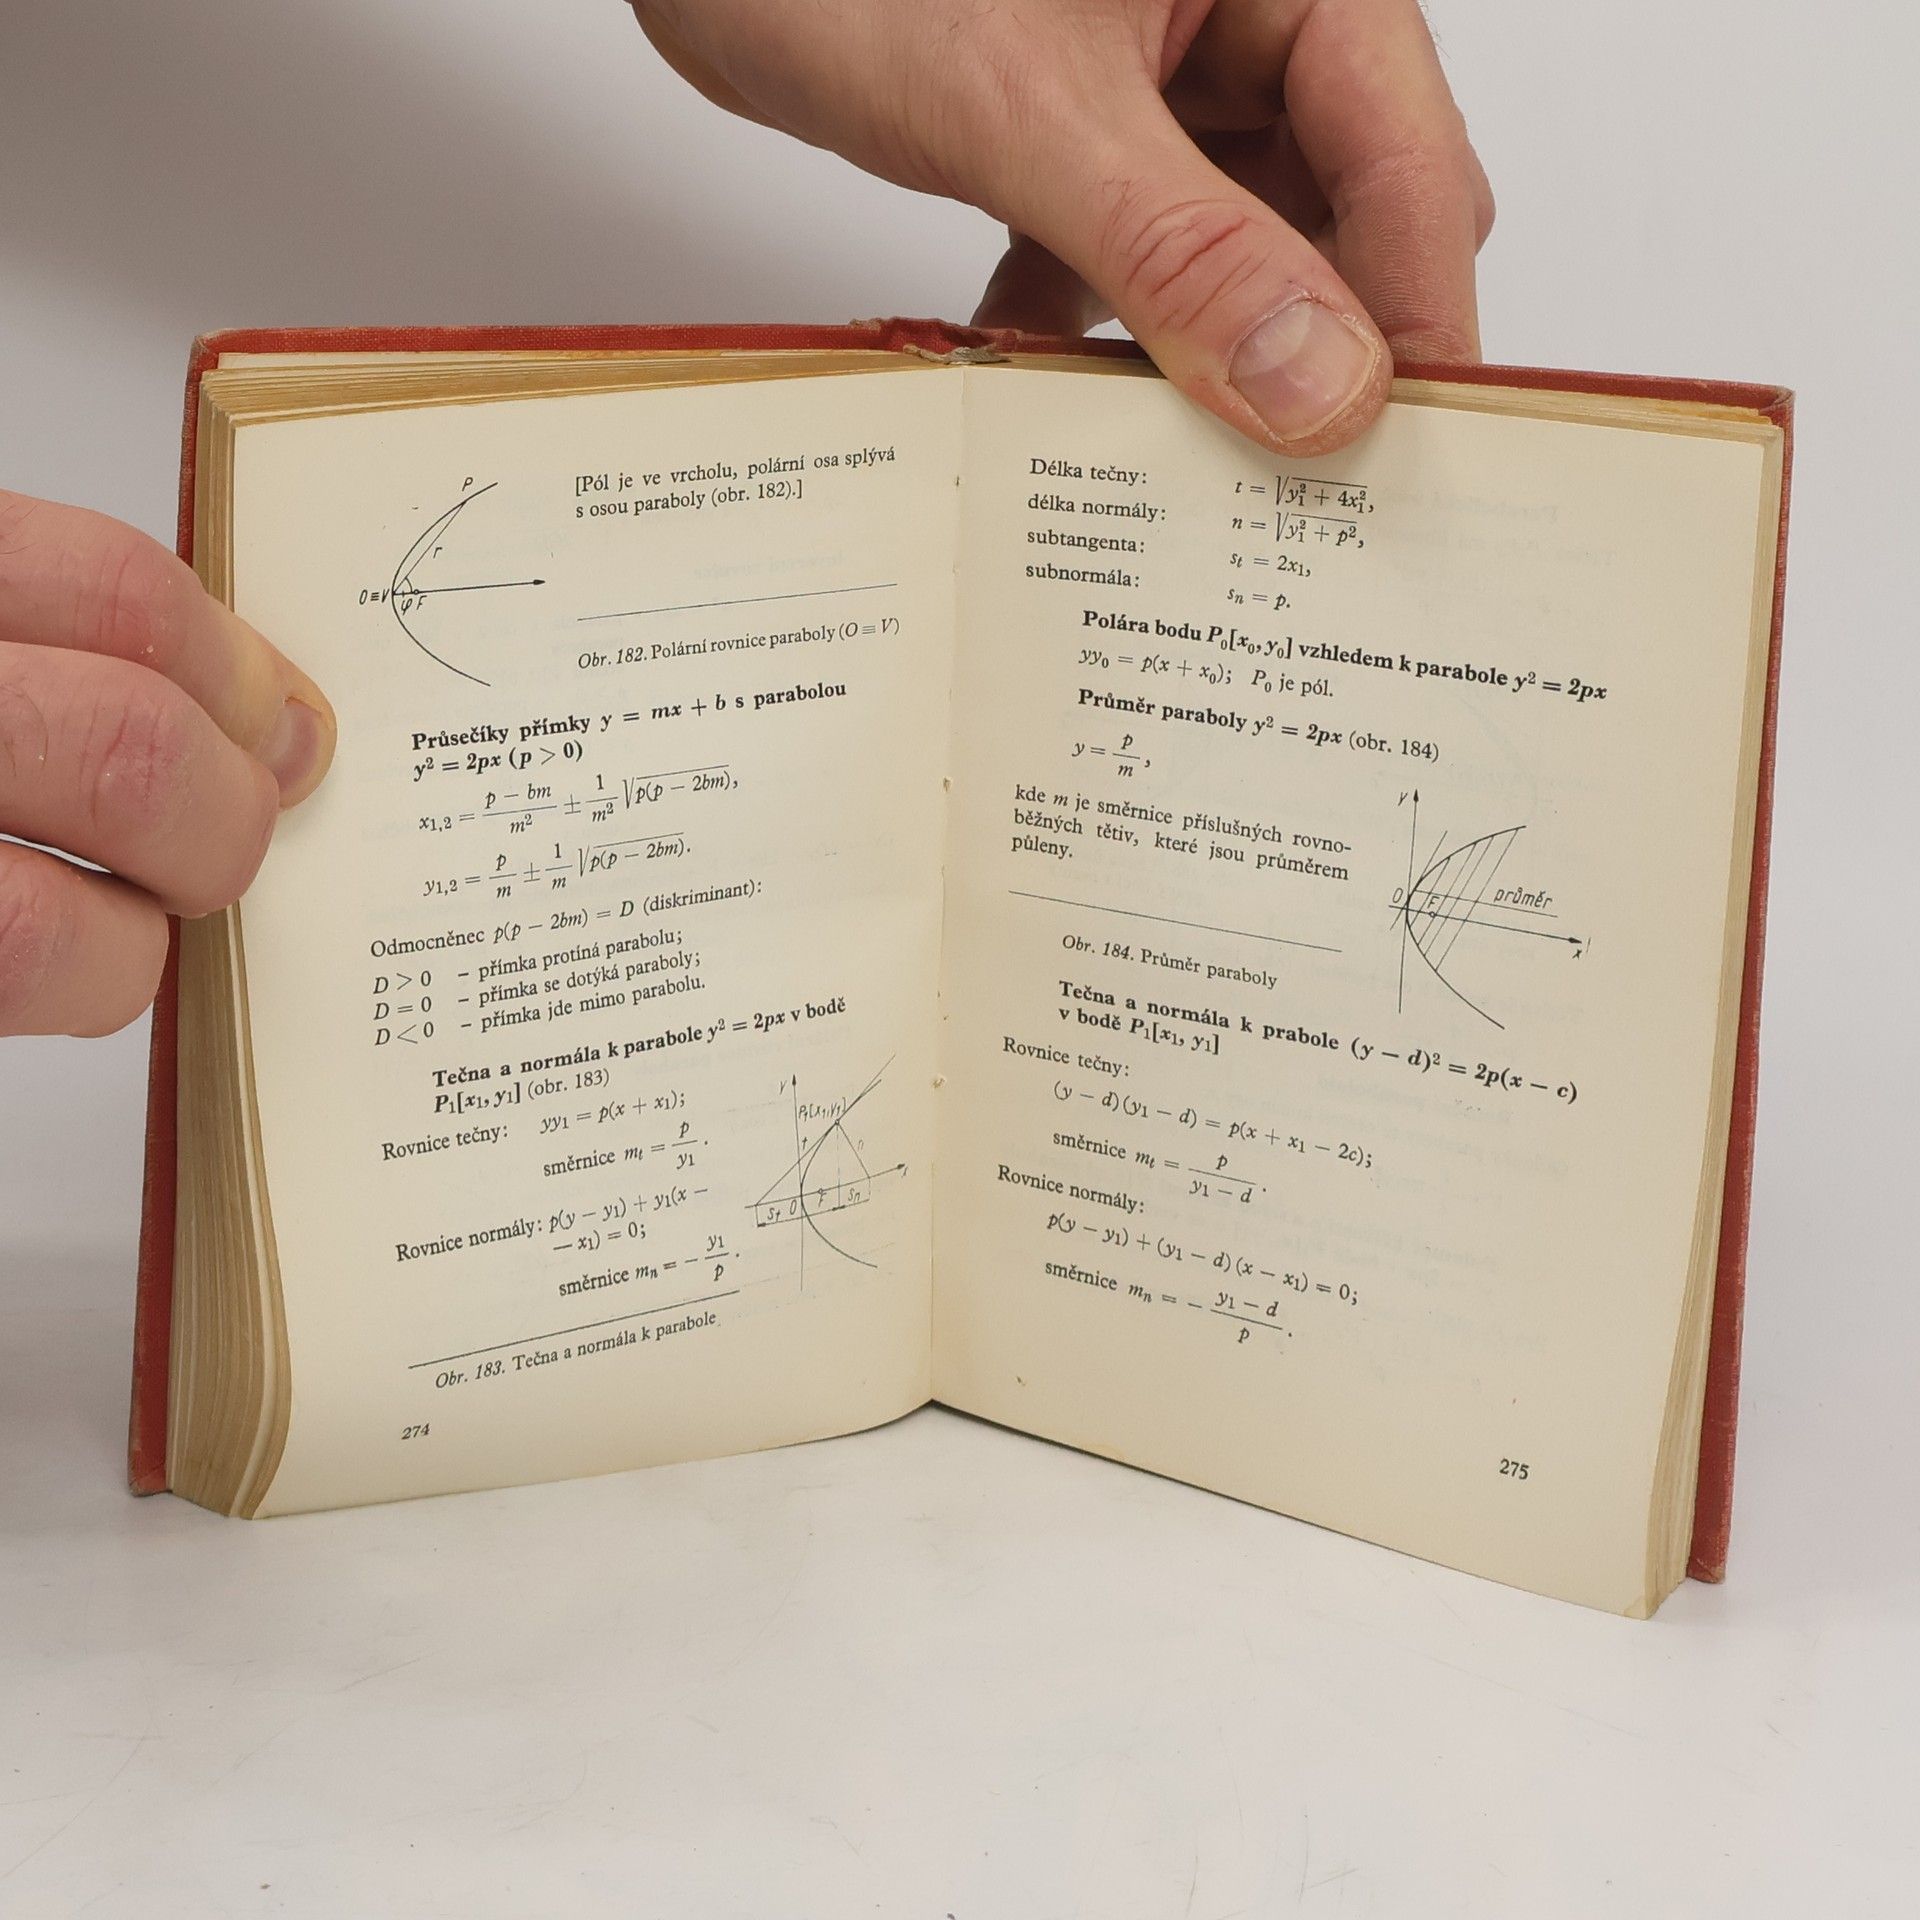 P
r
O ≡ V
φ
F
[Pól je ve vrcholu, polární osa splývá
s osou paraboly (obr. 182).]
Obr. 182. Polární rovnice paraboly (O ≡ V)
Průsečíky přímky y = mx + b s parabolou
y² = 2px (p > 0)
x₁,₂ = (p − bm)/m² ± 1/m² √(p(p − 2bm)),
y₁,₂ = p/m ± 1/m √(p(p − 2bm)).
Odmocněnec p(p − 2bm) = D (diskriminant):
D > 0 – přímka protíná parabolu;
D = 0 – přímka se dotýká paraboly;
D < 0 – přímka jde mimo parabolu.
Tečna a normála k parabole y² = 2px v bodě
P₁[x₁, y₁] (obr. 183)
Rovnice tečny: yy₁ = p(x + x₁);
směrnice mₜ = p/y₁.
Rovnice normály: p(y − y₁) + y₁(x −
− x₁) = 0;
směrnice mₙ = − y₁/p.
y
P₁[x₁,y₁]
t
n
x
sₜ
O
F
sₙ
Obr. 183. Tečna a normála k parabole
274
Délka tečny: t = √(y₁² + 4x₁²),
délka normály: n = √(y₁² + p²),
subtangenta: sₜ = 2x₁,
subnormála: sₙ = p.
Polára bodu P₀[x₀, y₀] vzhledem k parabole y² = 2px
yy₀ = p(x + x₀); P₀ je pól.
Průměr paraboly y² = 2px (obr. 184)
y = p/m,
kde m je směrnice příslušných rovno-
běžných tětiv, které jsou průměrem
půleny.
y
O
F
průměr
x
Obr. 184. Průměr paraboly
Tečna a normála k prabole (y − d)² = 2p(x − c)
v bodě P₁[x₁, y₁]
Rovnice tečny:
(y − d)(y₁ − d) = p(x + x₁ − 2c);
směrnice mₜ = p/(y₁ − d).
Rovnice normály:
p(y − y₁) + (y₁ − d)(x − x₁) = 0;
směrnice mₙ = − (y₁ − d)/p.
275